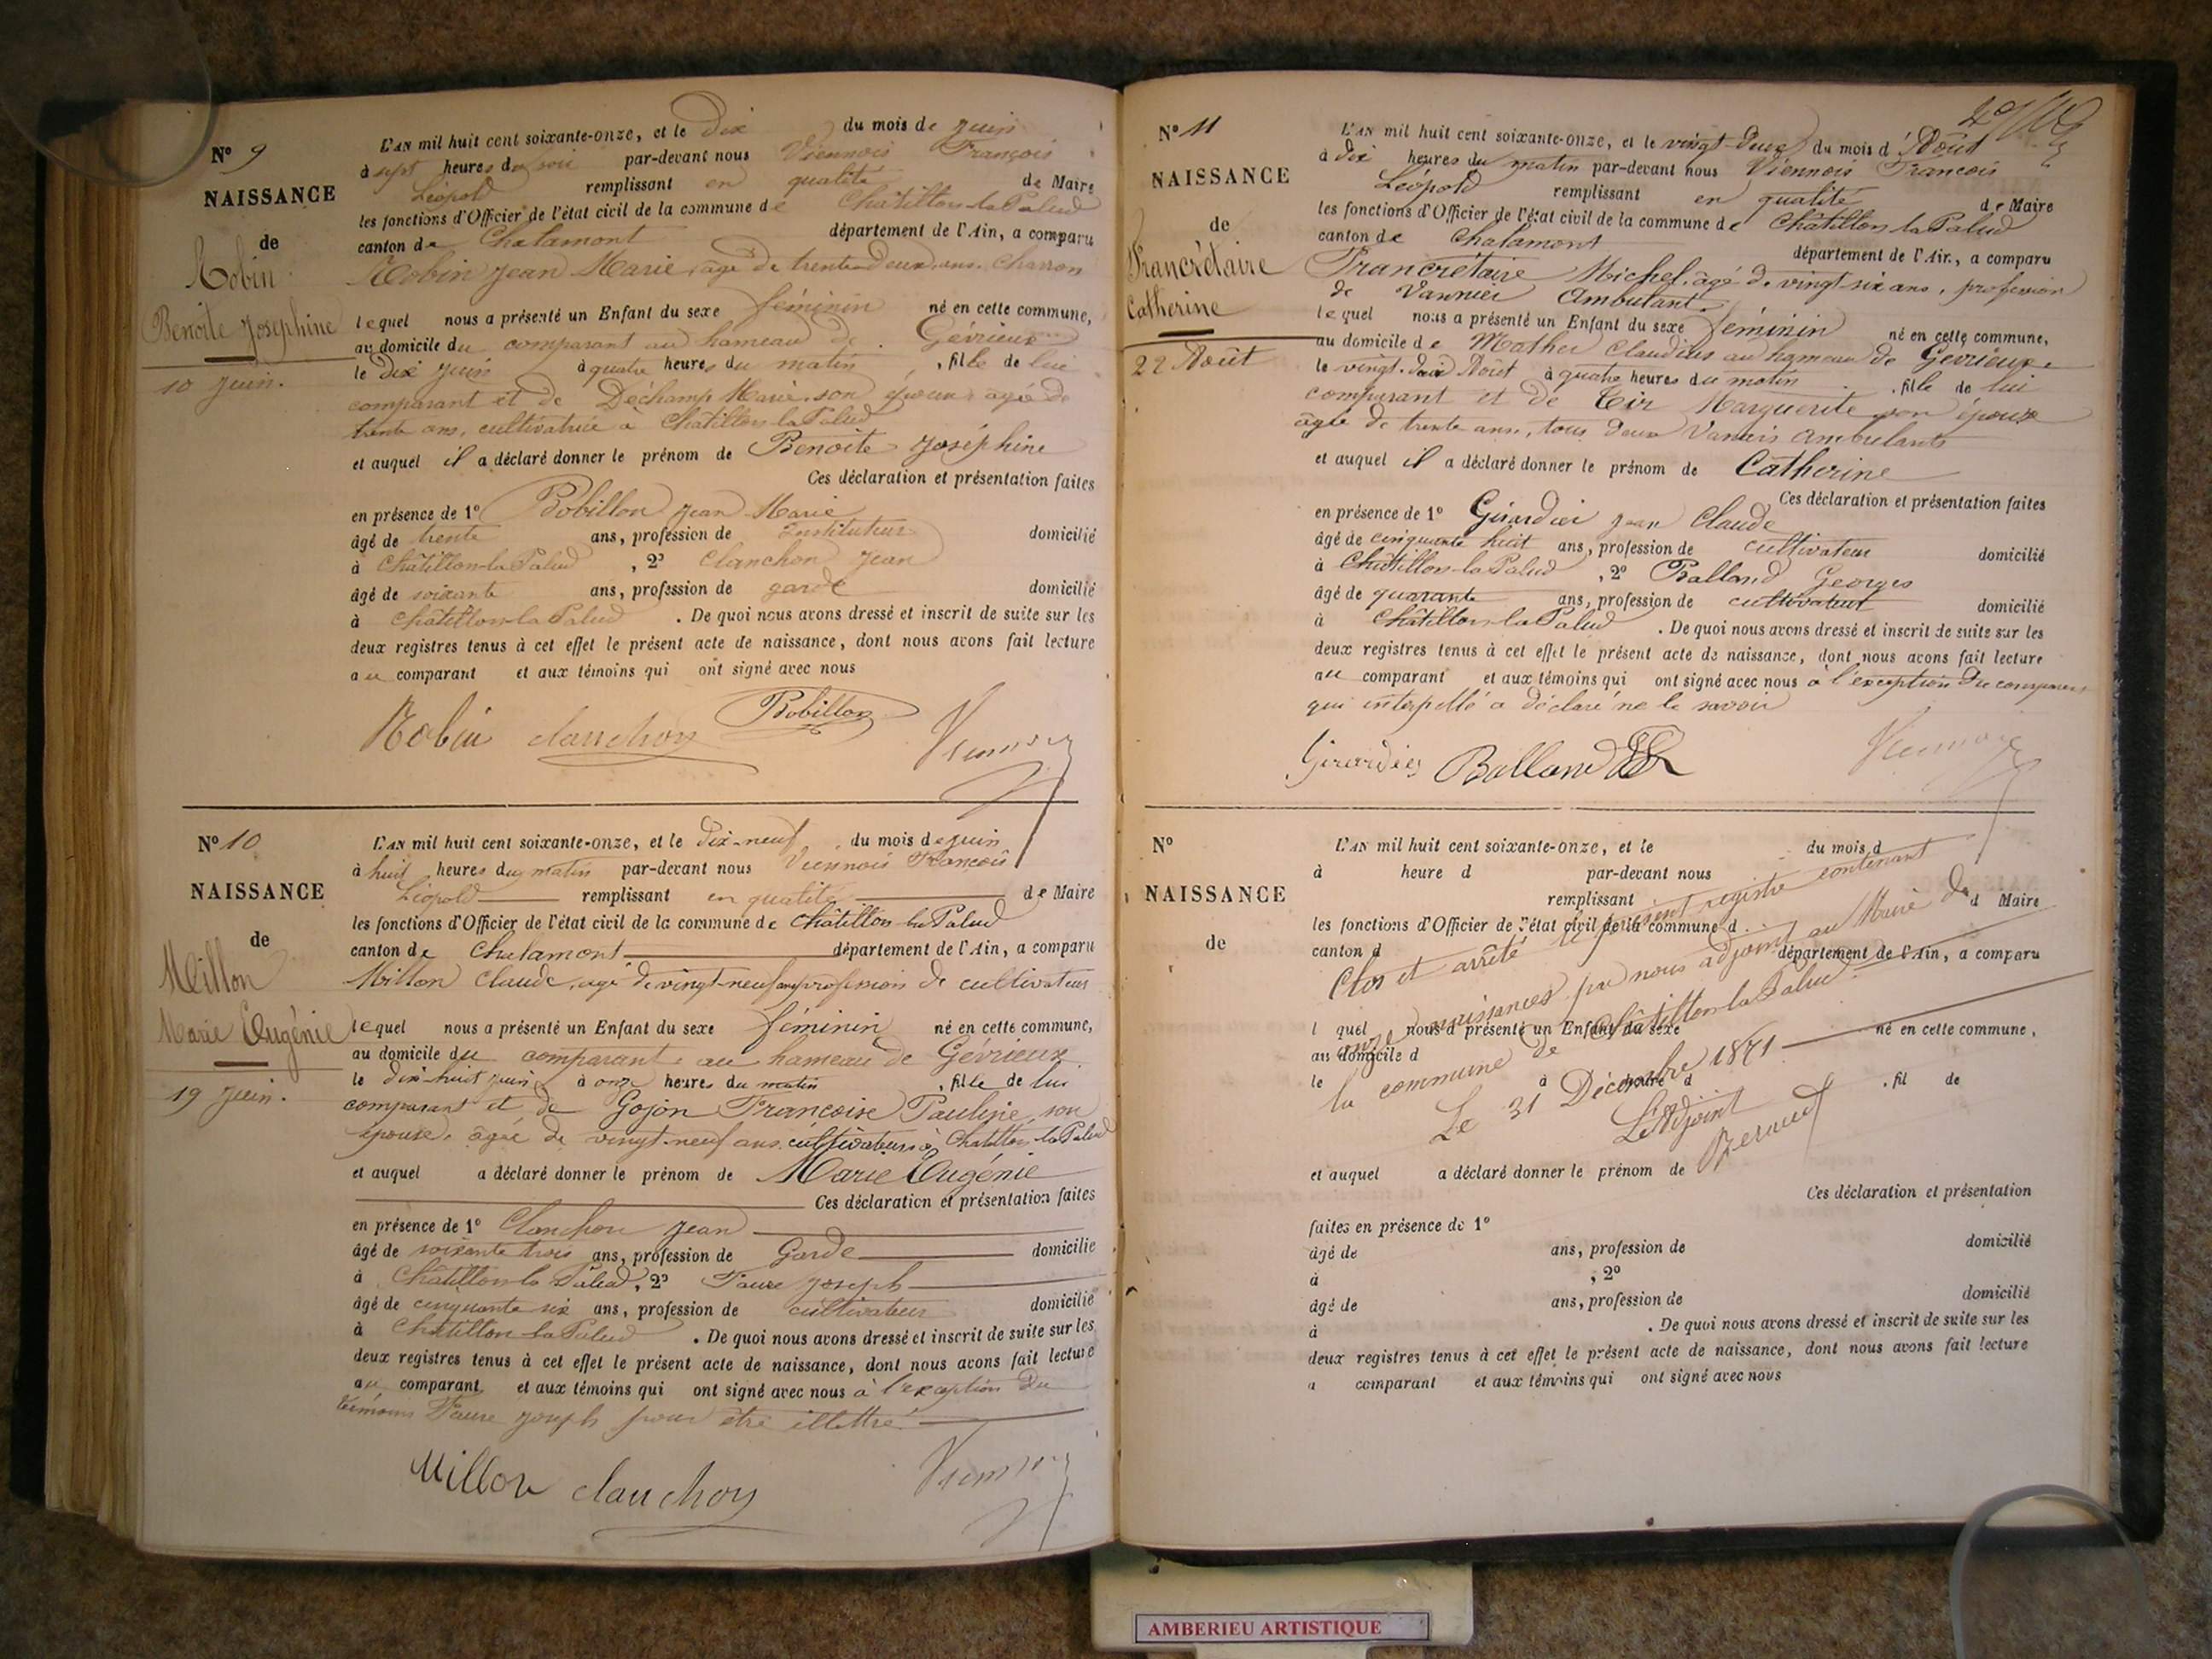 N° 9
NAISSANCE
de
Robin
Benoite Josephine
10 Juin.
L'AN mil huit cent soixante-onze, et le Dix du mois de Juin
à sept heures du soir par-devant nous Viennois François
Léopold remplissant en qualité de Maire
les fonctions d'Officier de l'état civil de la commune de Châtillon-la-Palud
canton de Chalamont département de l'Ain, a comparu
Robin Jean Marie, agé de trente deux ans. Charron
lequel nous a présenté un Enfant du sexe féminin né en cette commune,
au domicile du comparant au hameau de Gévrieux
le Dix Juin à quatre heures du matin, fille de lui
comparant et de Déchamp Marie son épouse agée de
trente ans, cultivatrice à Châtillon la Palud
et auquel il a déclaré donner le prénom de Benoite Joséphine
Ces déclaration et présentation faites
en présence de 1° Bobillon Jean Marie
âgé de trente ans, profession de Instituteur domicilié
à Châtillon-la-Palud, 2° Clanchon Jean
âgé de soixante ans, profession de garde domicilié
à Châtillon-la-Palud. De quoi nous avons dressé et inscrit de suite sur les
deux registres tenus à cet effet le présent acte de naissance, dont nous avons fait lecture
au comparant et aux témoins qui ont signé avec nous
Robin clanchon Bobillon Viennois
N° 10
NAISSANCE
de
Millon
Marie Eugénie
19 Juin.
L'AN mil huit cent soixante-onze, et le Dix-neuf du mois de Juin
à huit heures du matin par-devant nous Viennois François
Léopold remplissant en qualité de Maire
les fonctions d'Officier de l'état civil de la commune de Châtillon la Palud
canton de Chalamont département de l'Ain, a comparu
Millon Claude, agé de vingt-neuf ans profession de cultivateur
lequel nous a présenté un Enfant du sexe féminin né en cette commune,
au domicile du comparant au hameau de Gévrieux
le dix-huit juin à onze heures du matin, fille de lui
comparant et de Gojon Françoise Pauline son
épouse, agée de vingt-neuf ans cultivateurs à Chatillon-la-Palud
et auquel a déclaré donner le prénom de Marie Eugénie
Ces déclaration et présentation faites
en présence de 1° Clanchon Jean
âgé de soixante trois ans, profession de Garde domicilié
à Châtillon la Palud, 2° Faure Joseph
âgé de cinquante six ans, profession de cultivateur domicilié
à Châtillon la Palud. De quoi nous avons dressé et inscrit de suite sur les
deux registres tenus à cet effet le présent acte de naissance, dont nous avons fait lecture
au comparant et aux témoins qui ont signé avec nous à l'exception du
témoins Faure Joseph pour être illettré
Millon clanchon Viennois
N° 11
NAISSANCE
de
Francrétaire
Catherine
22 Août
L'AN mil huit cent soixante-onze, et le vingt-deux du mois d'Août
à dix heures du matin par-devant nous Viennois François
Léopold remplissant en qualité de Maire
les fonctions d'Officier de l'état civil de la commune de Châtillon la Palud
canton de Chalamont département de l'Ain, a comparu
Francrétaire Michel, agé de vingt-six ans, profession
de Vannier Ambulant
lequel nous a présenté un Enfant du sexe féminin né en cette commune,
au domicile de Mather Claudius au hameau de Gevrieux
le vingt-deux Août à quatre heures du matin, fille de lui
comparant et de Cir Marguerite son épouse
agée de trente ans, tous deux Vaniers ambulants
et auquel il a déclaré donner le prénom de Catherine
Ces déclaration et présentation faites
en présence de 1° Girardier Jean Claude
âgé de cinquante huit ans, profession de cultivateur domicilié
à Châtillon-la-Palud, 2° Balland Georges
âgé de quarante ans, profession de cultivateur domicilié
à Châtillon la Palud. De quoi nous avons dressé et inscrit de suite sur les
deux registres tenus à cet effet le présent acte de naissance, dont nous avons fait lecture
au comparant et aux témoins qui ont signé avec nous à l'exception du comparant
qui interpellé a déclaré ne le savoir
Girardier Balland Viennois
N°
NAISSANCE
de
L'AN mil huit cent soixante-onze, et le du mois d
à heure d par-devant nous
remplissant d Maire
les fonctions d'Officier de l'état civil de la commune d
canton d département de l'Ain, a comparu
l quel nous a présenté un Enfant du sexe né en cette commune,
au domicile d
le à heure d, fil de
Clos et arrêté le présent registre contenant
onze naissances par nous adjoint au Maire de
la commune de Châtillon la Palud
Le 31 Décembre 1871
L'Adjoint
et auquel a déclaré donner le prénom de
Ces déclaration et présentation
faites en présence de 1°
âgé de ans, profession de domicilié
à , 2°
âgé de ans, profession de domicilié
à . De quoi nous avons dressé et inscrit de suite sur les
deux registres tenus à cet effet le présent acte de naissance, dont nous avons fait lecture
a comparant et aux témoins qui ont signé avec nous
AMBERIEU ARTISTIQUE